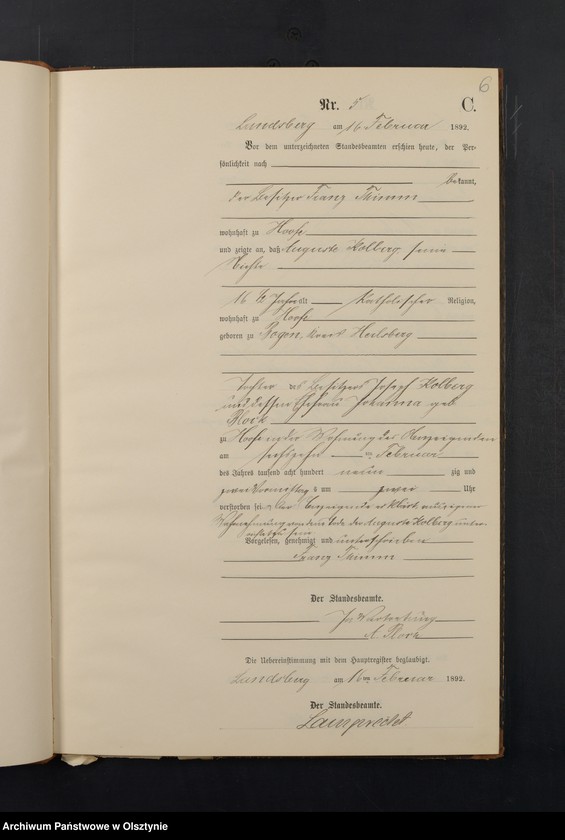 6
Nr. 5 C.
Landsberg am 16 Februar 1892.
Vor dem unterzeichneten Standesbeamten erschien heute, der Per-
sönlichkeit nach
bekannt,
der Besitzer Franz Thimm
wohnhaft zu Hoofe
und zeigte an, daß Auguste Kolberg, seine
Nichte
16 ½ Jahr alt Katholischer Religion,
wohnhaft zu Hoofe
geboren zu Rogen, Kreis Heilsberg
Tochter des Besitzers Joseph Kolberg
und dessen Ehefrau Johanna geb.
Block
zu Hoofe in der Wohnung des Anzeigenden
am sechszehn ten Februar
des Jahres tausend acht hundert neun zig und
zwei Vormittag s um zwei Uhr
verstorben sei, der Anzeigende erklärt, aus eigener
Wahrnehmung von dem Tode der Auguste Kolberg unter-
richtet zu sein
Vorgelesen, genehmigt und unterschrieben
Franz Thimm
Der Standesbeamte.
In Vertretung
Die Uebereinstimmung mit dem Hauptregister beglaubigt.
Landsberg am 16ten Februar 1892.
Der Standesbeamte.
Archiwum Państwowe w Olsztynie